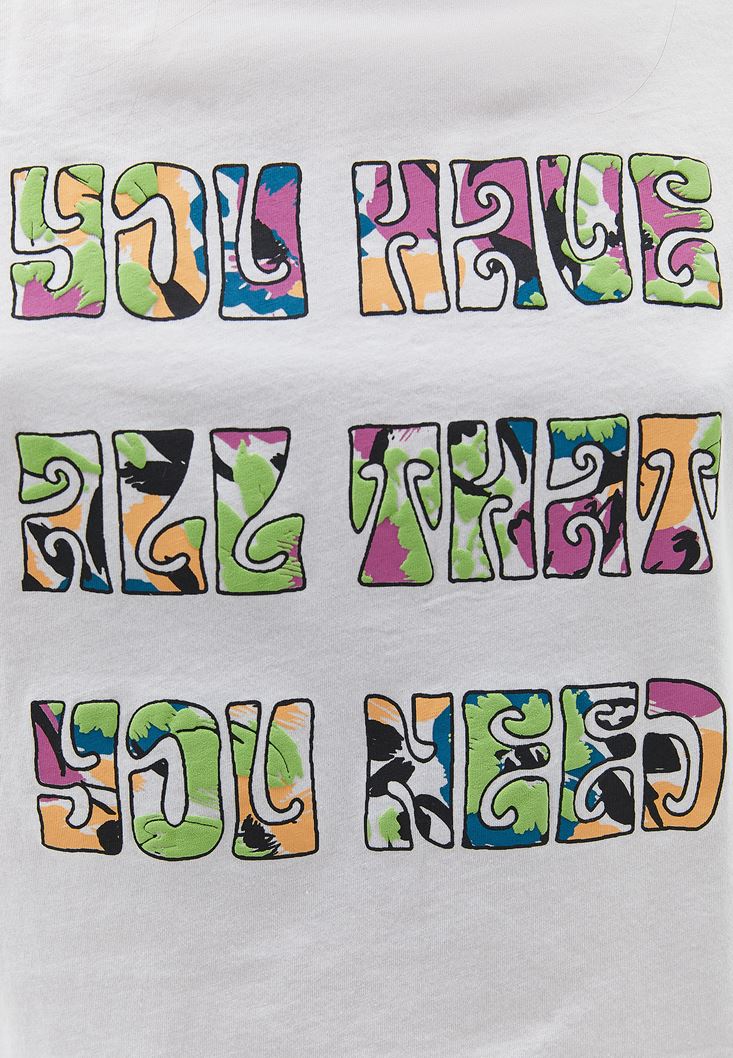 YOU HAVE
ALL THAT
YOU NEED